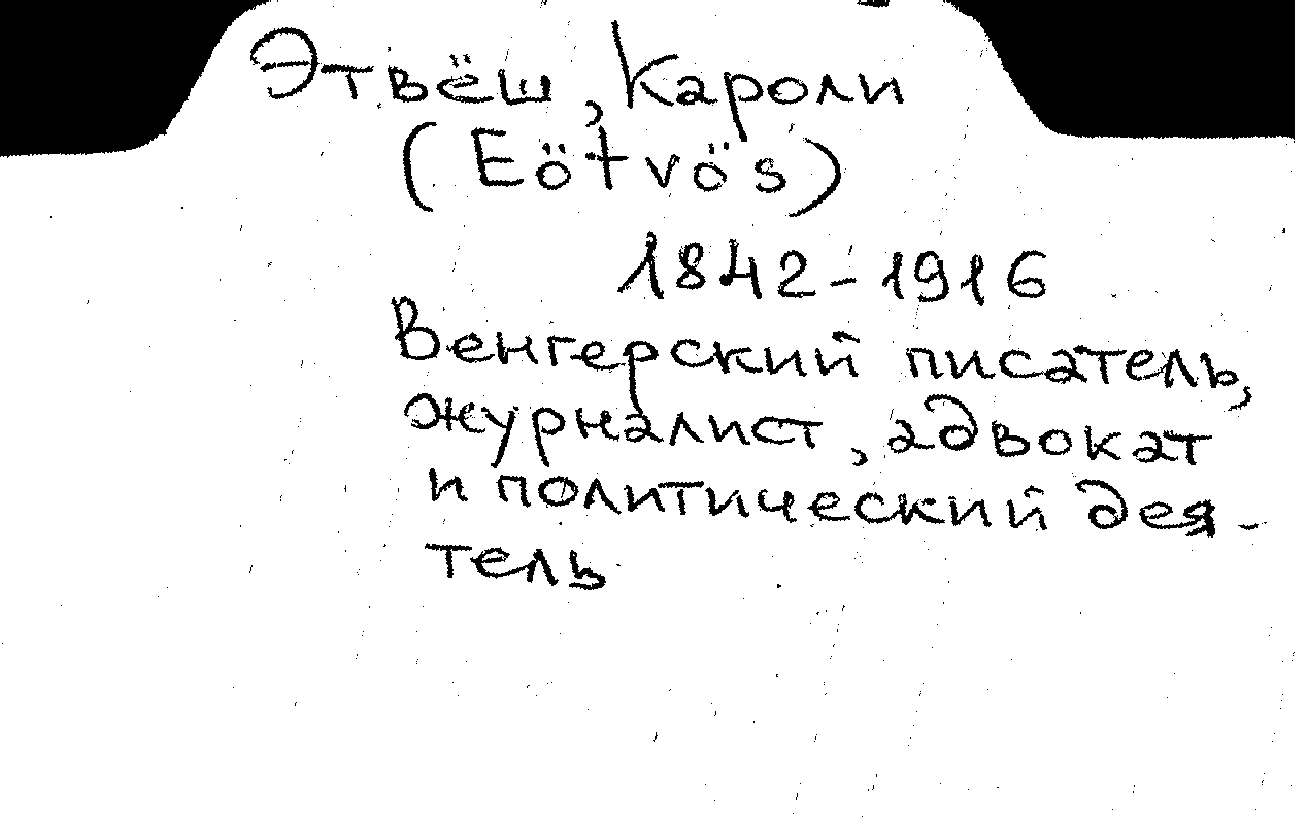 Этвёш, Кароли
(Eötvös)
1842-1916
Венгерский писатель,
журналист, адвокат
и политический дея-
тель